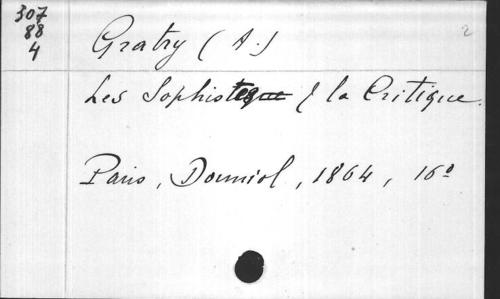 307
88
4
Gratry (A.)
2
Les Sophistes & la Critique.
Paris, Douniol, 1864, 16º